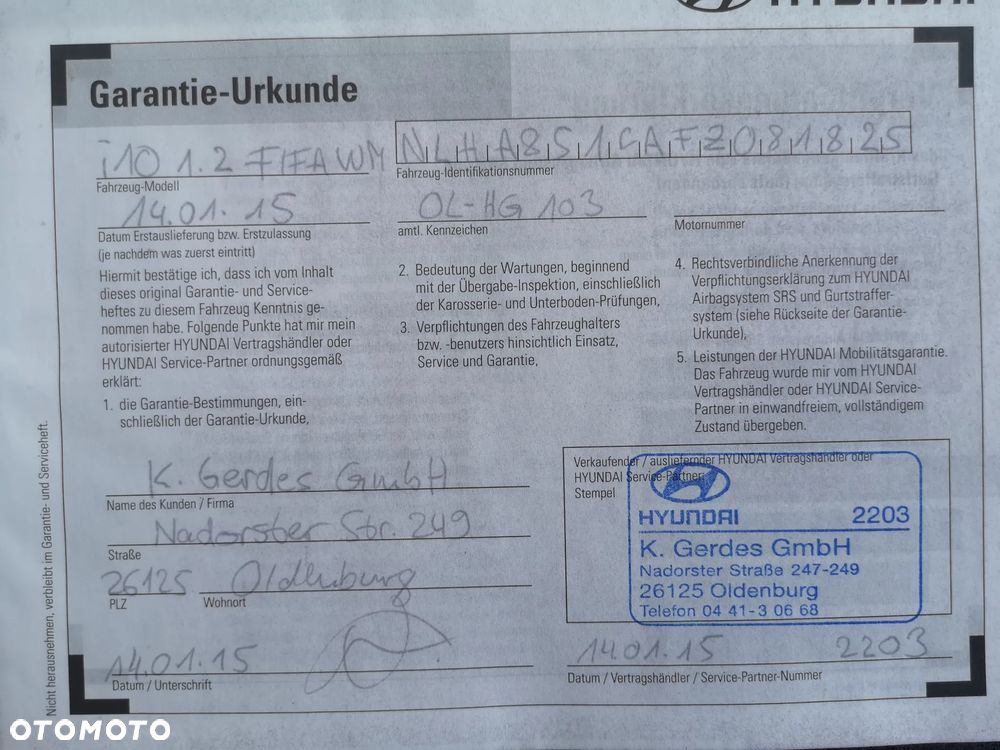 HYUNDAI
Garantie-Urkunde
i10 1.2 FIFA WM
Fahrzeug-Modell
NLHA851CAFZ081825
Fahrzeug-Identifikationsnummer
14.01.15
Datum Erstauslieferung bzw. Erstzulassung
(je nachdem was zuerst eintritt)
OL-HG 103
amtl. Kennzeichen
Motornummer
Hiermit bestätige ich, dass ich vom Inhalt
dieses original Garantie- und Service-
heftes zu diesem Fahrzeug Kenntnis ge-
nommen habe. Folgende Punkte hat mir mein
autorisierter HYUNDAI Vertragshändler oder
HYUNDAI Service-Partner ordnungsgemäß
erklärt:
1. die Garantie-Bestimmungen, ein-
schließlich der Garantie-Urkunde,
2. Bedeutung der Wartungen, beginnend
mit der Übergabe-Inspektion, einschließlich
der Karosserie- und Unterboden-Prüfungen,
3. Verpflichtungen des Fahrzeughalters
bzw. -benutzers hinsichtlich Einsatz,
Service und Garantie,
4. Rechtsverbindliche Anerkennung der
Verpflichtungserklärung zum HYUNDAI
Airbagsystem SRS und Gurtstraffer-
system (siehe Rückseite der Garantie-
Urkunde),
5. Leistungen der HYUNDAI Mobilitätsgarantie.
Das Fahrzeug wurde mir vom HYUNDAI
Vertragshändler oder HYUNDAI Service-
Partner in einwandfreiem, vollständigem
Zustand übergeben.
K. Gerdes GmbH
Name des Kunden / Firma
Nadorster Str. 249
Straße
26125 Oldenburg
PLZ Wohnort
14.01.15
Datum / Unterschrift
Verkaufender / ausliefernder HYUNDAI Vertragshändler oder
HYUNDAI Service-Partner:
Stempel
HYUNDAI 2203
K. Gerdes GmbH
Nadorster Straße 247-249
26125 Oldenburg
Telefon 04 41-3 06 68
14.01.15 2203
Datum / Vertragshändler / Service-Partner-Nummer
Nicht herausnehmen, verbleibt im Garantie- und Serviceheft.
OTOMOTO